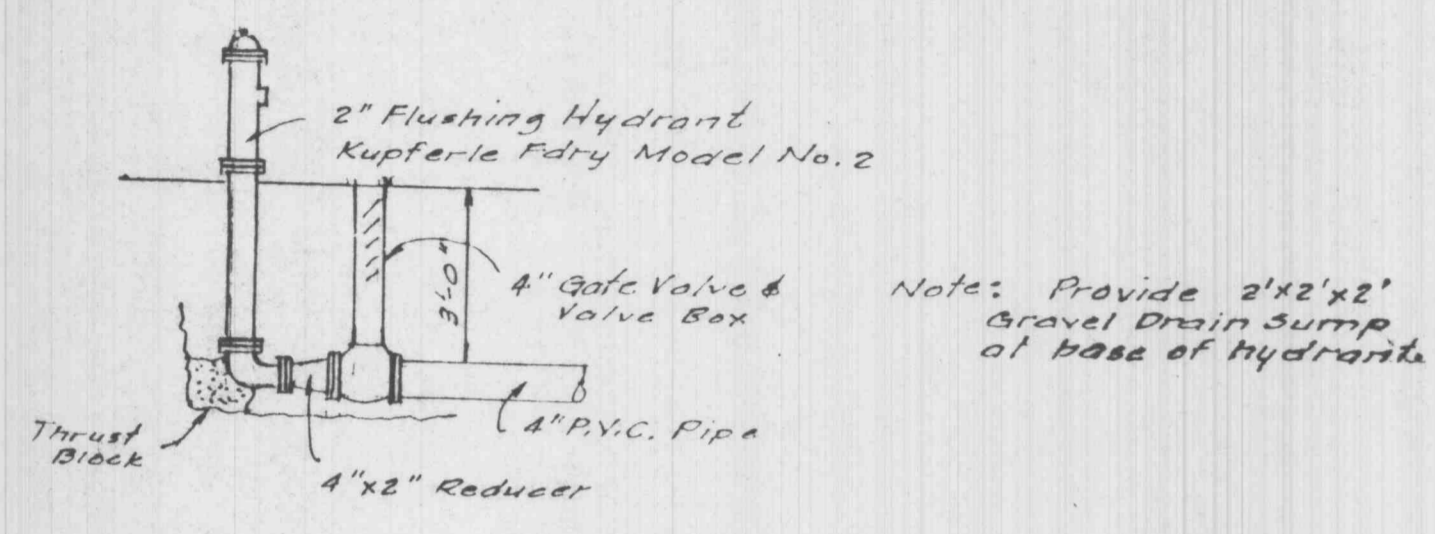 2" Flushing Hydrant
Kupferle Fdry Model No. 2
3'-0"
4" Gate Valve &
Valve Box
Note: Provide 2'x2'x2'
Gravel Drain Sump
at base of hydrante
4" P.V.C. Pipe
Thrust
Block
4"x2" Reducer